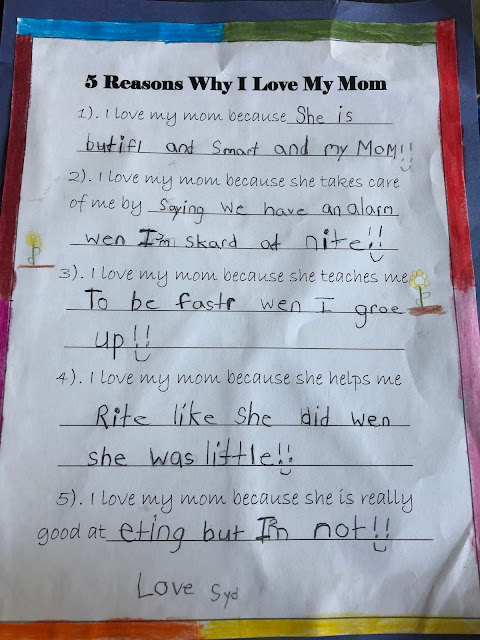 5 Reasons Why I Love My Mom
1). I love my mom because She is
butifl and Smart and my MOM!!
2). I love my mom because she takes care
of me by Saying we have an alarm
wen I'm skard at nite!!
3). I love my mom because she teaches me
To be fastr wen I groe
up!!
4). I love my mom because she helps me
Rite like She did wen
she was little!!
5). I love my mom because she is really
good at eting but I'm not!!
Love Syd